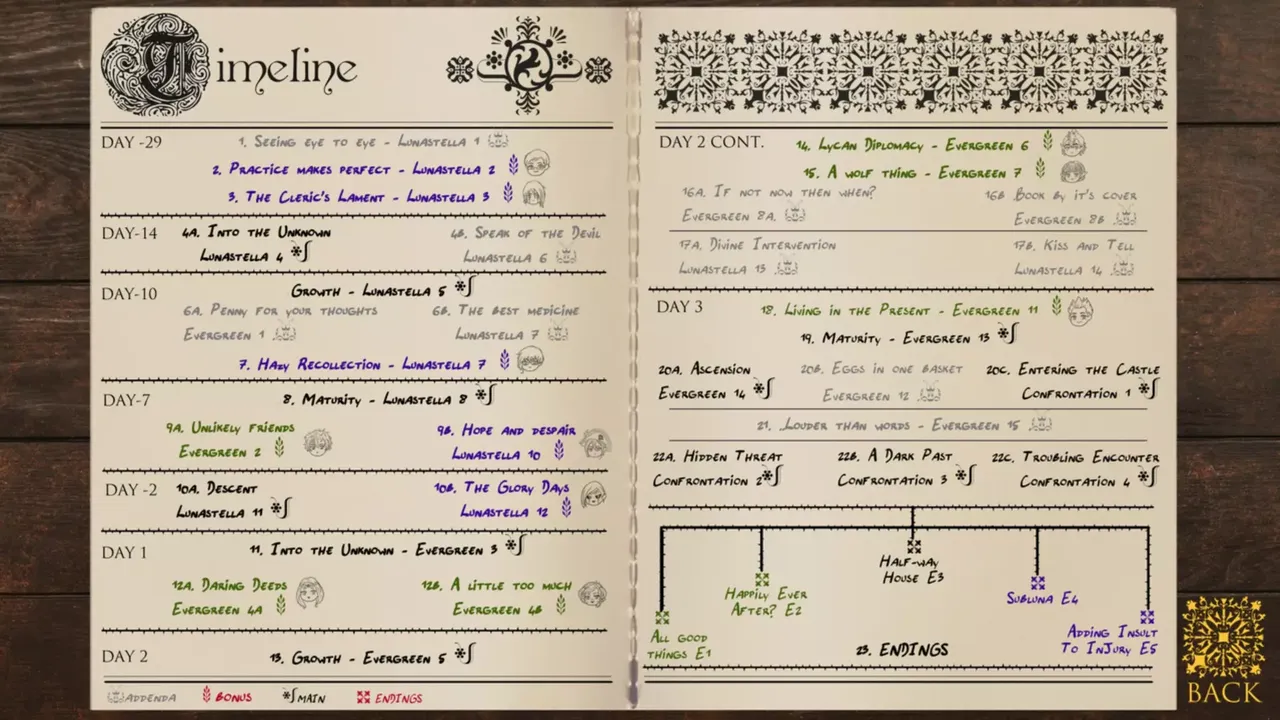 Timeline
DAY -29
1. Seeing eye to eye - Lunastella 1
2. Practice makes perfect - Lunastella 2
3. The Cleric's Lament - Lunastella 3
DAY-14
4A. Into the Unknown
Lunastella 4
4B. Speak of the Devil
Lunastella 6
DAY-10
Growth - Lunastella 5
6A. Penny for your thoughts
Evergreen 1
6B. The best medicine
Lunastella 7
7. Hazy Recollection - Lunastella 7
DAY-7
8. Maturity - Lunastella 8
9A. Unlikely friends
Evergreen 2
9B. Hope and despair
Lunastella 10
DAY -2
10A. Descent
Lunastella 11
10B. The Glory Days
Lunastella 12
DAY 1
11. Into the Unknown - Evergreen 3
12A. Daring Deeds
Evergreen 4A
12B. A little too much
Evergreen 4B
DAY 2
13. Growth - Evergreen 5
ADDENDA
BONUS
MAIN
ENDINGS
DAY 2 CONT.
14. Lycan Diplomacy - Evergreen 6
15. A wolf thing - Evergreen 7
16A. If not now then when?
Evergreen 8A.
16B Book by it's cover
Evergreen 8B
17A. Divine Intervention
Lunastella 13
17B. Kiss and Tell
Lunastella 14
DAY 3
18. Living in the Present - Evergreen 11
19. Maturity - Evergreen 13
20A. Ascension
Evergreen 14
20B. Eggs in one basket
Evergreen 12
20C. Entering the Castle
Confrontation 1
21. Louder than words - Evergreen 15
22A. Hidden Threat
Confrontation 2
22B. A Dark Past
Confrontation 3
22C. Troubling Encounter
Confrontation 4
Half-way
House E3
Happily Ever
After? E2
Subluna E4
All good
things E1
Adding Insult
To Injury E5
23. ENDINGS
BACK